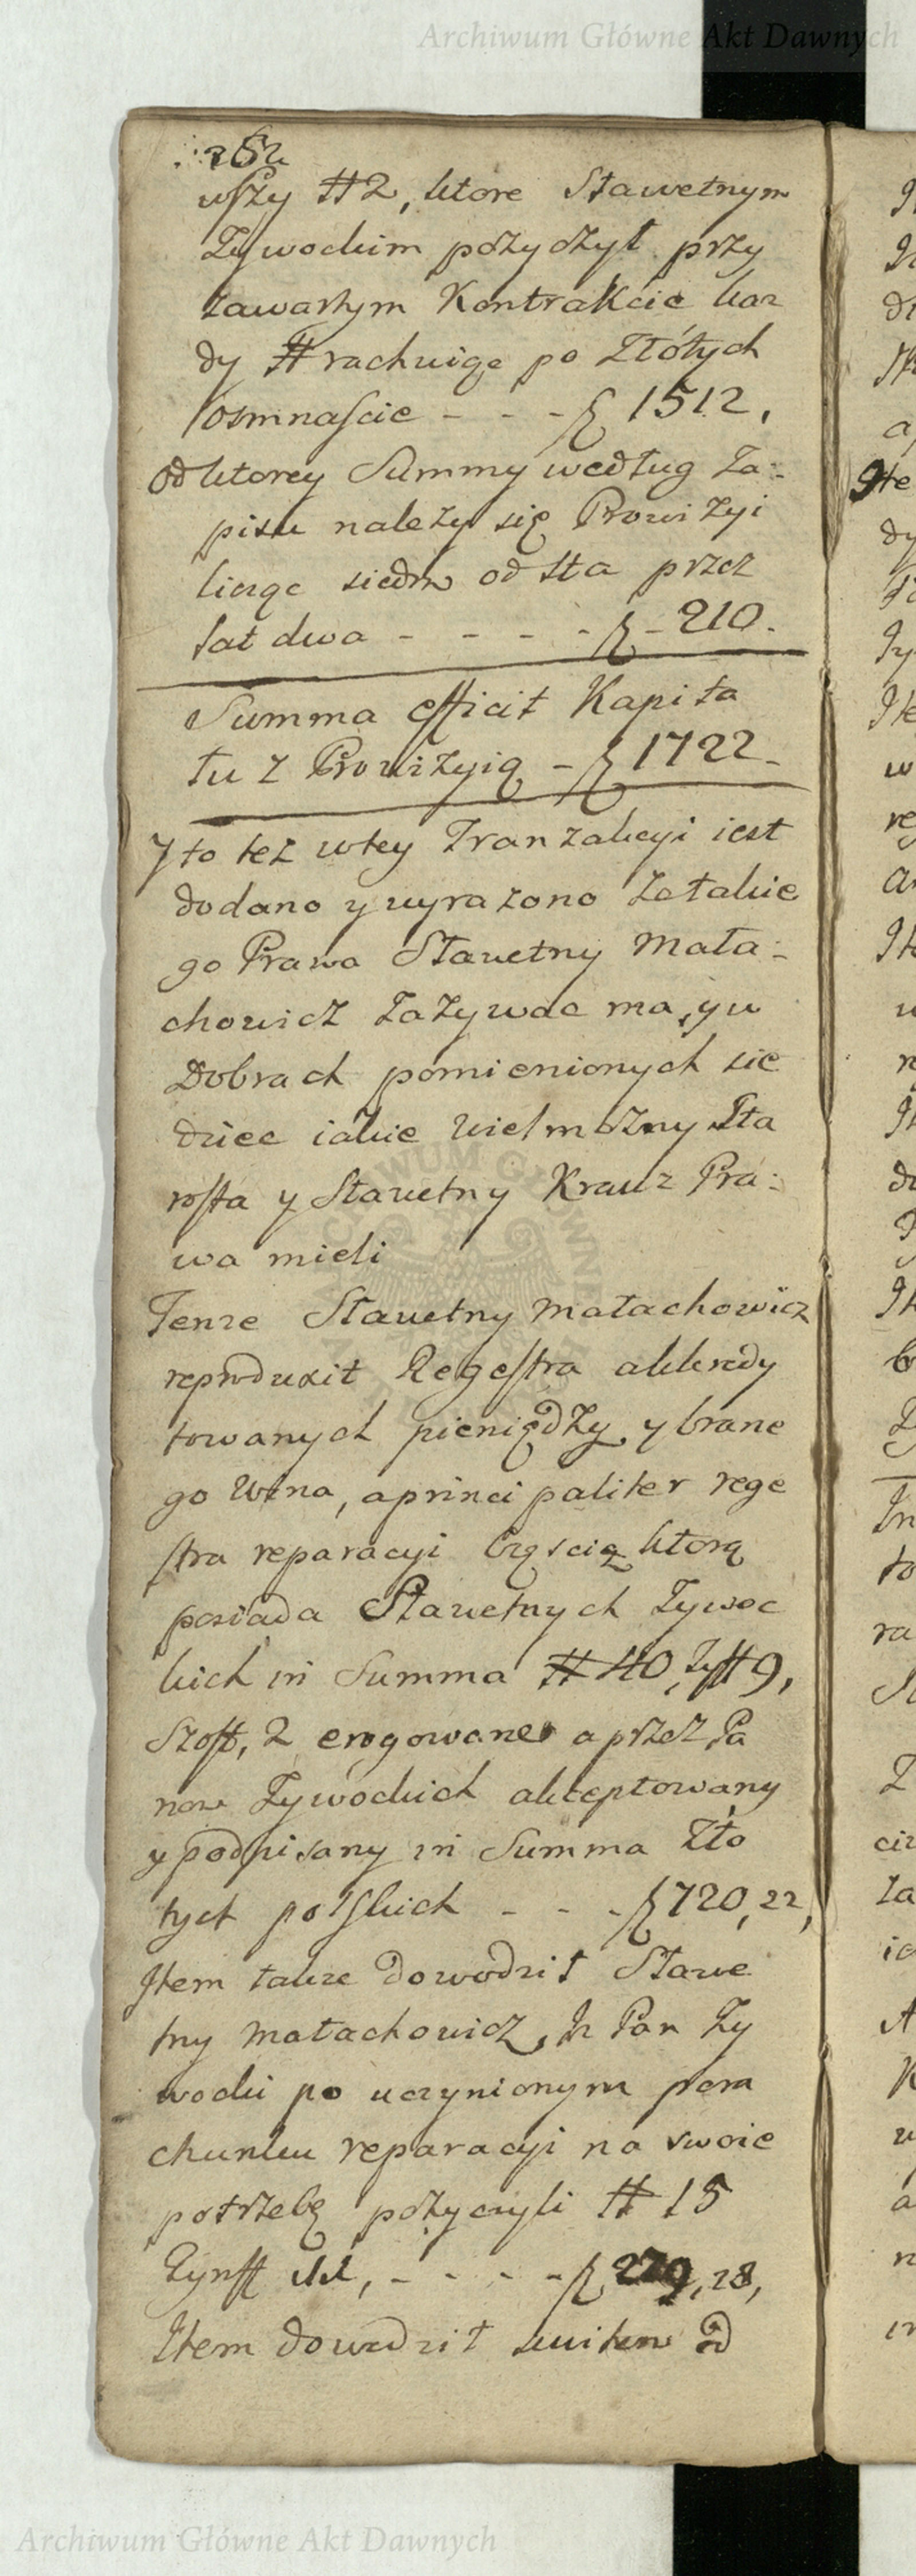 Archiwum Główne Akt Dawnych
262
wszy # 2, ktore Sławetnym
Zywockim pożyczył przy
zawartym Kontrakcie kaz
dy # rachuiąc po Złótych
ośmnaście - - - zł 1512,
Od ktorey Summy według Za:
pisu należy się Prowizyi
licząc siedm od sta przez
lat dwa - - - - zł - 210.
Summa efficit Kapita
łu z Prowizyią - zł 1722 -
Y to też w tey Tranzakcyi iest
dodano y wyrazono że takie
go Prawa Sławetny Mała:
chowicz Zażywac ma, y w
Dobrach pomienionych sie
dziec iakie Wielmożny Sta
rosta y Sławetny Krauz Pra:
wa mieli
Tenze Sławetny Małachowicz
reproduxit Regestra akkredy
towanych pieniędzy y brane
go Wina, a principaliter rege
stra reparacyi częścią ktorą
posiada Sławetnych Zywoc
kich in Summa # 40, Tynff 9,
Szost, 2 erogowane a przez Pa
now Zywockich akceptowany
y podpisany in Summa Zło
tych polskich - - - zł 720, 22,
Item takze dowodził Sławe
tny Małachowicz, Iz Pan Zy
wocki po uczynionym pora
chunku reparacyi na swoie
potrzebę pożyczyli # 15
Tynff - - - - zł 279, 28,
Item dowodził kwitem Od
Archiwum Główne Akt Dawnych